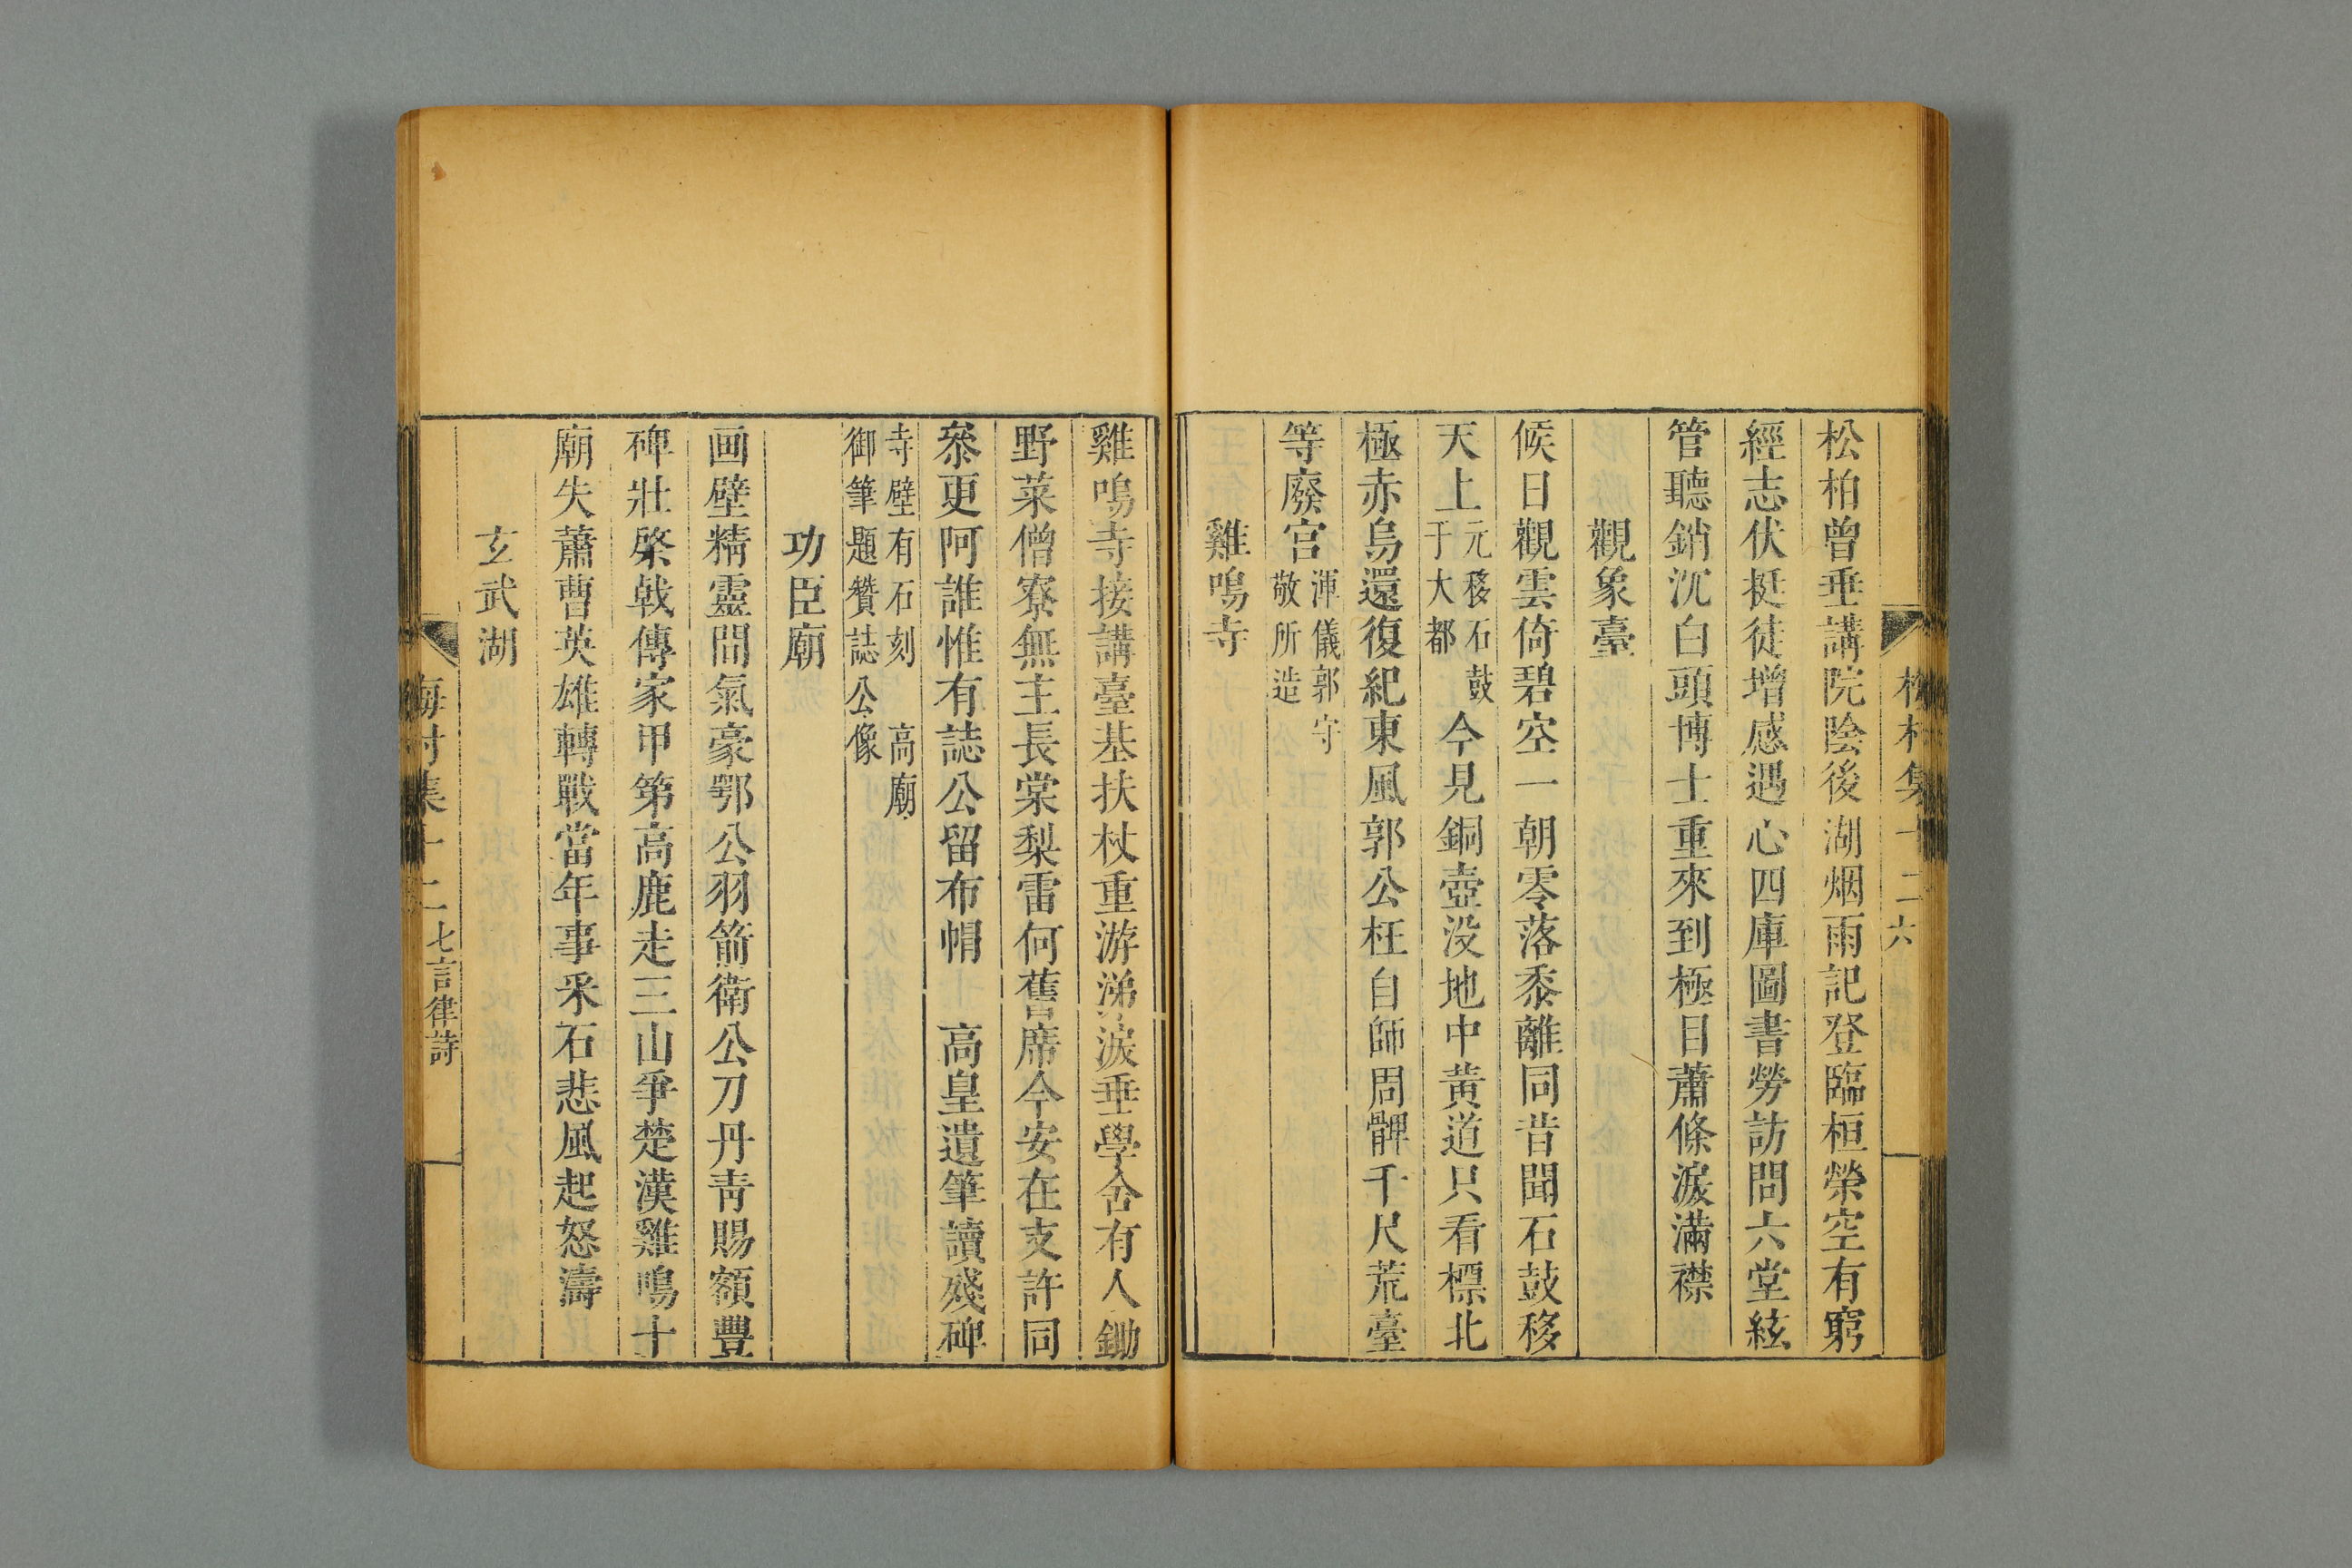 松柏曾垂講院陰後湖烟雨記登臨桓榮空有窮
經志伏挺徒增感遇心四庫圖書勞訪問六堂絃
管聽銷沉白頭博士重來到極目蕭條淚滿襟
觀象臺
候日觀雲倚碧空一朝零落黍離同昔聞石鼓移
天上元移石鼓于大都今見銅壺没地中黄道只看標北
極赤烏還復紀東風郭公枉自師周髀千尺荒臺
等廢宫渾儀郭守敬所造
雞鳴寺
雞鳴寺接講臺基扶杖重游涕淚垂學舍有人鋤
野菜僧寮無主長棠梨雷何舊席今安在支許同
叅更阿誰惟有誌公留布帽 高皇遺筆讀殘碑
寺壁有石刻 高廟
御筆題贊誌公像
功臣廟
画壁精靈間氣豪鄂公羽箭衛公刀丹青賜額豐
碑壯棨戟傳家甲第高鹿走三山爭楚漢雞鳴十
廟失蕭曹英雄轉戰當年事釆石悲風起怒濤
玄武湖
梅村集十二七言律詩